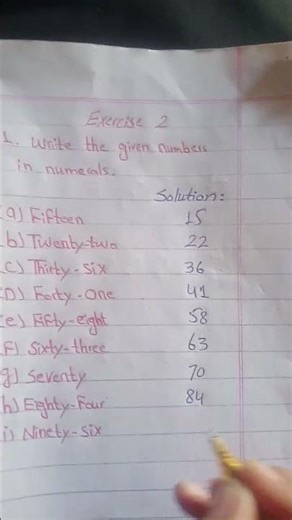 Exercise 2
1. Write the given numbers
in numerals.
Solution:
(a) Fifteen 15
b) Twenty-two 22
(c) Thirty-six 36
(D) Forty-one 41
(e) Fifty-eight 58
(F) Sixty-three 63
g) Seventy 70
h) Eighty-Four 84
i) Ninety-six